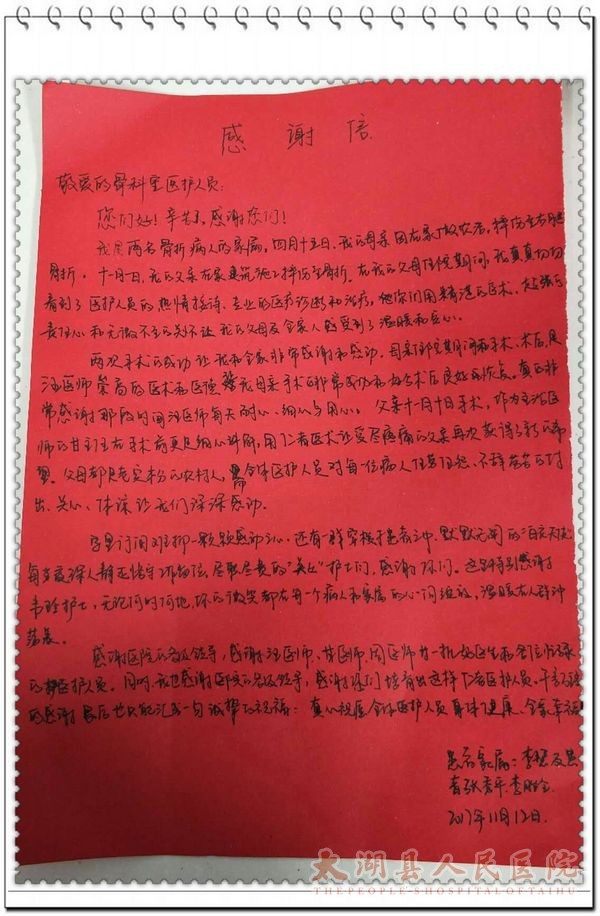 感谢信
敬爱的骨科室医护人员:
您们好!辛苦了,感谢您们!
我是两名骨折病人的家属,四月十五日,我的母亲因在家做农活,摔伤至右腿
骨折,十一月一日,我的父亲在家建筑施工摔伤至骨折。在我的父母住院期间,我真真切切
看到了医护人员的热情接待、专业的医疗诊断和治疗,他你们用精湛的医术、
责任心和无微不至的关怀让我的父母及全家人感受到了温暖和安心。
两次手术的成功让我和全家非常感谢和感动。母亲 术后,是
汪医师崇高的医术和医德 我母亲手术的非常成功和 术后良好的恢复。真的非
常感谢那段时间汪医师每天耐心、细心与用心。父亲十一月十日手术,作为主治医
师的甘主任在手术前更是细心讲解,用仁者医术让受尽疼痛的父亲再次获得了新的希
望。父母都是老实本份的农村人,而全体医护人员对每一位病人任劳任怨、不辞劳苦的付
出、关心、体谅让我们深深感动。
字里行间难抑一颗颗感动之心,还有一群穿梭于患者之中,默默无闻的“白衣天使”
每当夜深人静还坚守 岗位,尽职尽责的“美丘”护士们,感谢你们。这里特别感谢
韦 护士,无论何时何地,你的微笑都在每一个病人和家属的心间绽放,温暖在人群中
荡漾。
感谢医院的各级领导,感谢汪医师、甘医师、周医师 一批好医生和各位
的 医护人员。同时,我也感谢医院的各级领导,感谢你们培育出这样仁者医护人员,千言万语
的感谢最后也只能汇成一句诚挚的祝福:真心祝愿全体医护人员身体健康、全家幸福
患者家属:李 及患
者张 平、李
2017年11月12日.
太湖县人民医院
THE PEOPLE'S HOSPITAL OF TAIHU